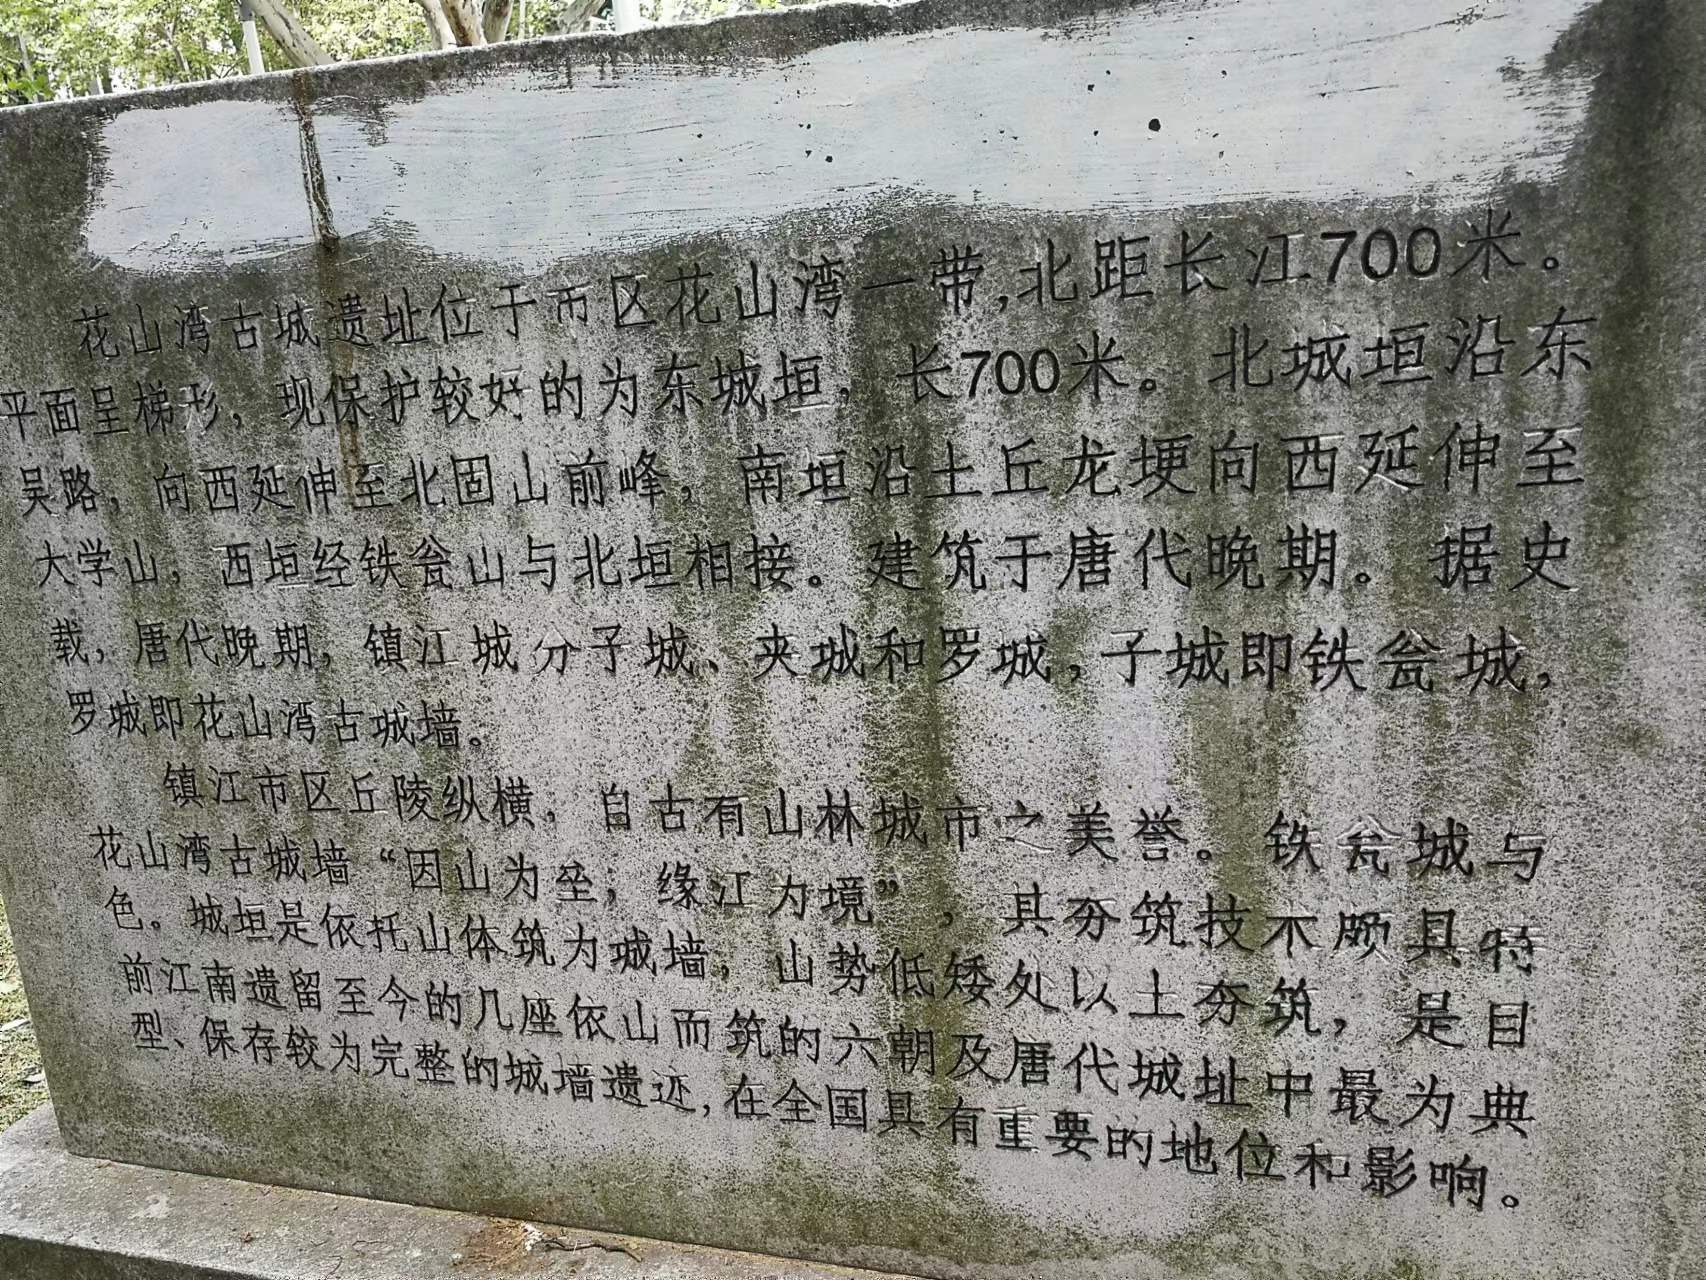 花山湾古城遗址位于市区花山湾一带,北距长江700米。
平面呈梯形，现保护较好的为东城垣，长700米。北城垣沿东
吴路，向西延伸至北固山前峰，南垣沿土丘龙埂向西延伸至
大学山，西垣经铁瓮山与北垣相接。建筑于唐代晚期。据史
载，唐代晚期，镇江城分子城、夹城和罗城，子城即铁瓮城，
罗城即花山湾古城墙。
镇江市区丘陵纵横，自古有山林城市之美誉。铁瓮城与
花山湾古城墙“因山为垒，缘江为境”，其夯筑技术颇具特
色。城垣是依托山体筑为城墙，山势低矮处以土夯筑，是目
前江南遗留至今的几座依山而筑的六朝及唐代城址中最为典
型、保存较为完整的城墙遗迹,在全国具有重要的地位和影响。